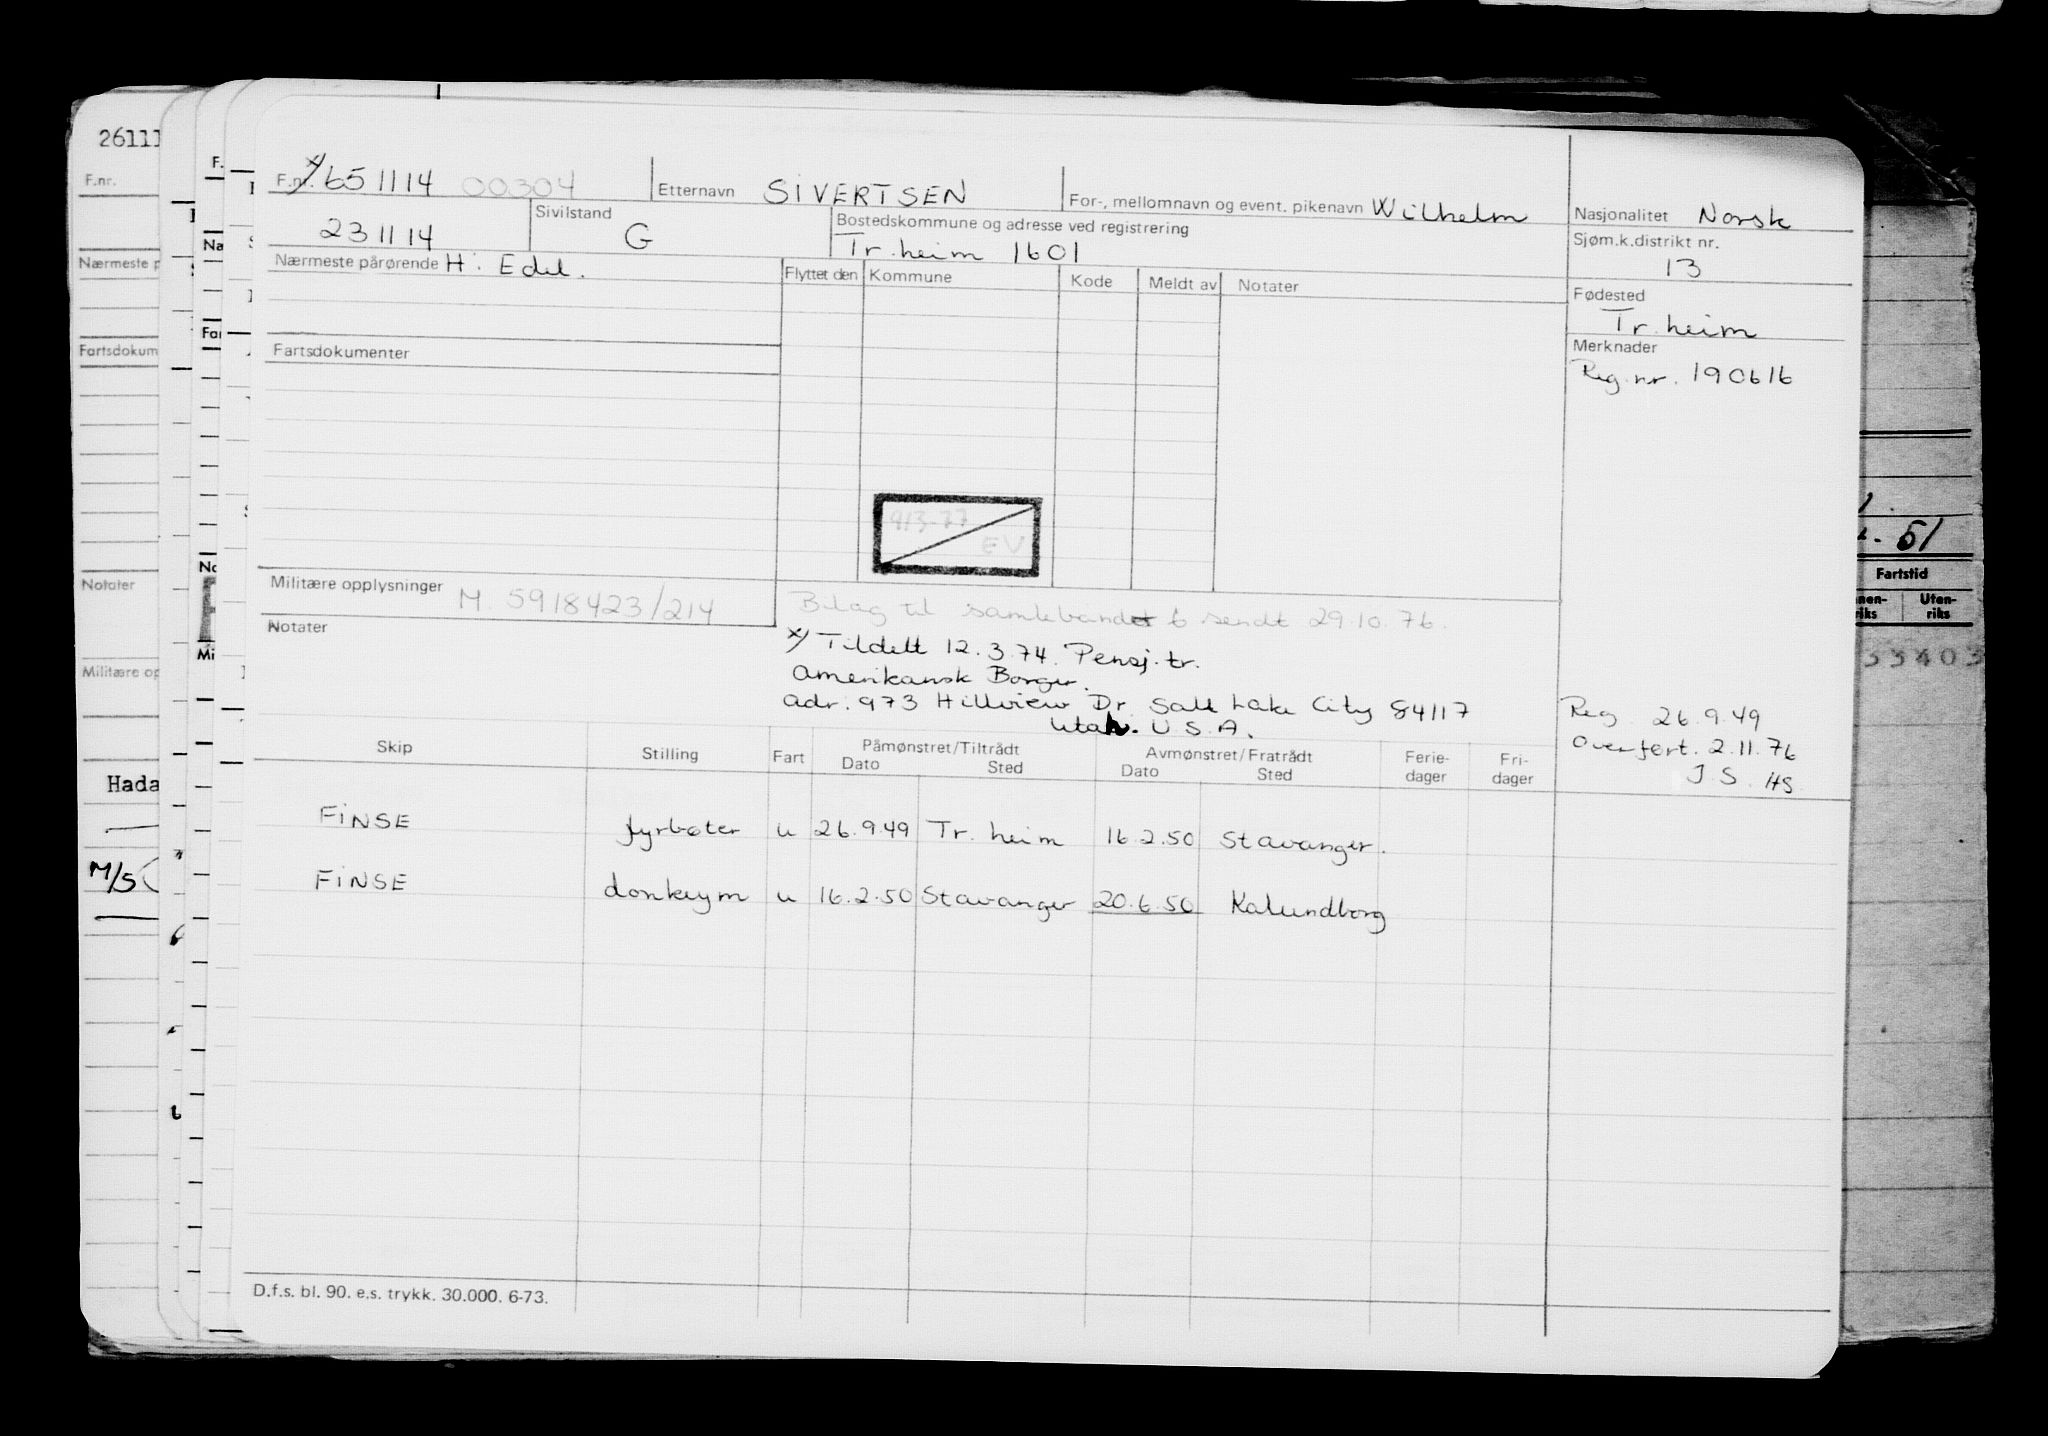 26111
F.nr.
Nærmeste p
Fartsdokum
Notater
Militære op
Hada
M/S
F.nr. x/ 651114 00304
Etternavn SIVERTSEN
For-, mellomnavn og event. pikenavn Wilhelm
Nasjonalitet Norsk
231114
Sivilstand G
Bostedskommune og adresse ved registrering
Tr.heim 1601
Sjøm.k.distrikt nr.
13
Nærmeste pårørende H. Edel.
Flyttet den Kommune Kode Meldt av Notater
Fødested
Tr.heim
Fartsdokumenter
Merknader
Reg.nr. 190616
913-77
EV
Militære opplysninger M. 5918423/214
Bilag til samlebåndet 6 sendt 29.10.76.
Notater
x/ Tildelt 12.3.74. Pensj.tr.
Amerikansk Borger.
adr: 973 Hillview Dr. Salt Lake City 84117
Utah. U.S.A.
Reg. 26.9.49
Overført. 2.11.76
J.S. HS
Skip Stilling Fart Påmønstret/Tiltrådt Avmønstret/Fratrådt Ferie-dager Fri-dager
Dato Sted Dato Sted
FINSE fyrbøter u 26.9.49 Tr.heim 16.2.50 Stavanger.
FINSE donkeym u 16.2.50 Stavanger 20.6.50 Kalundborg
D.f.s. bl. 90. e.s. trykk. 30.000. 6-73.
. 51
Fartstid
nen-riks Uten-riks
33403